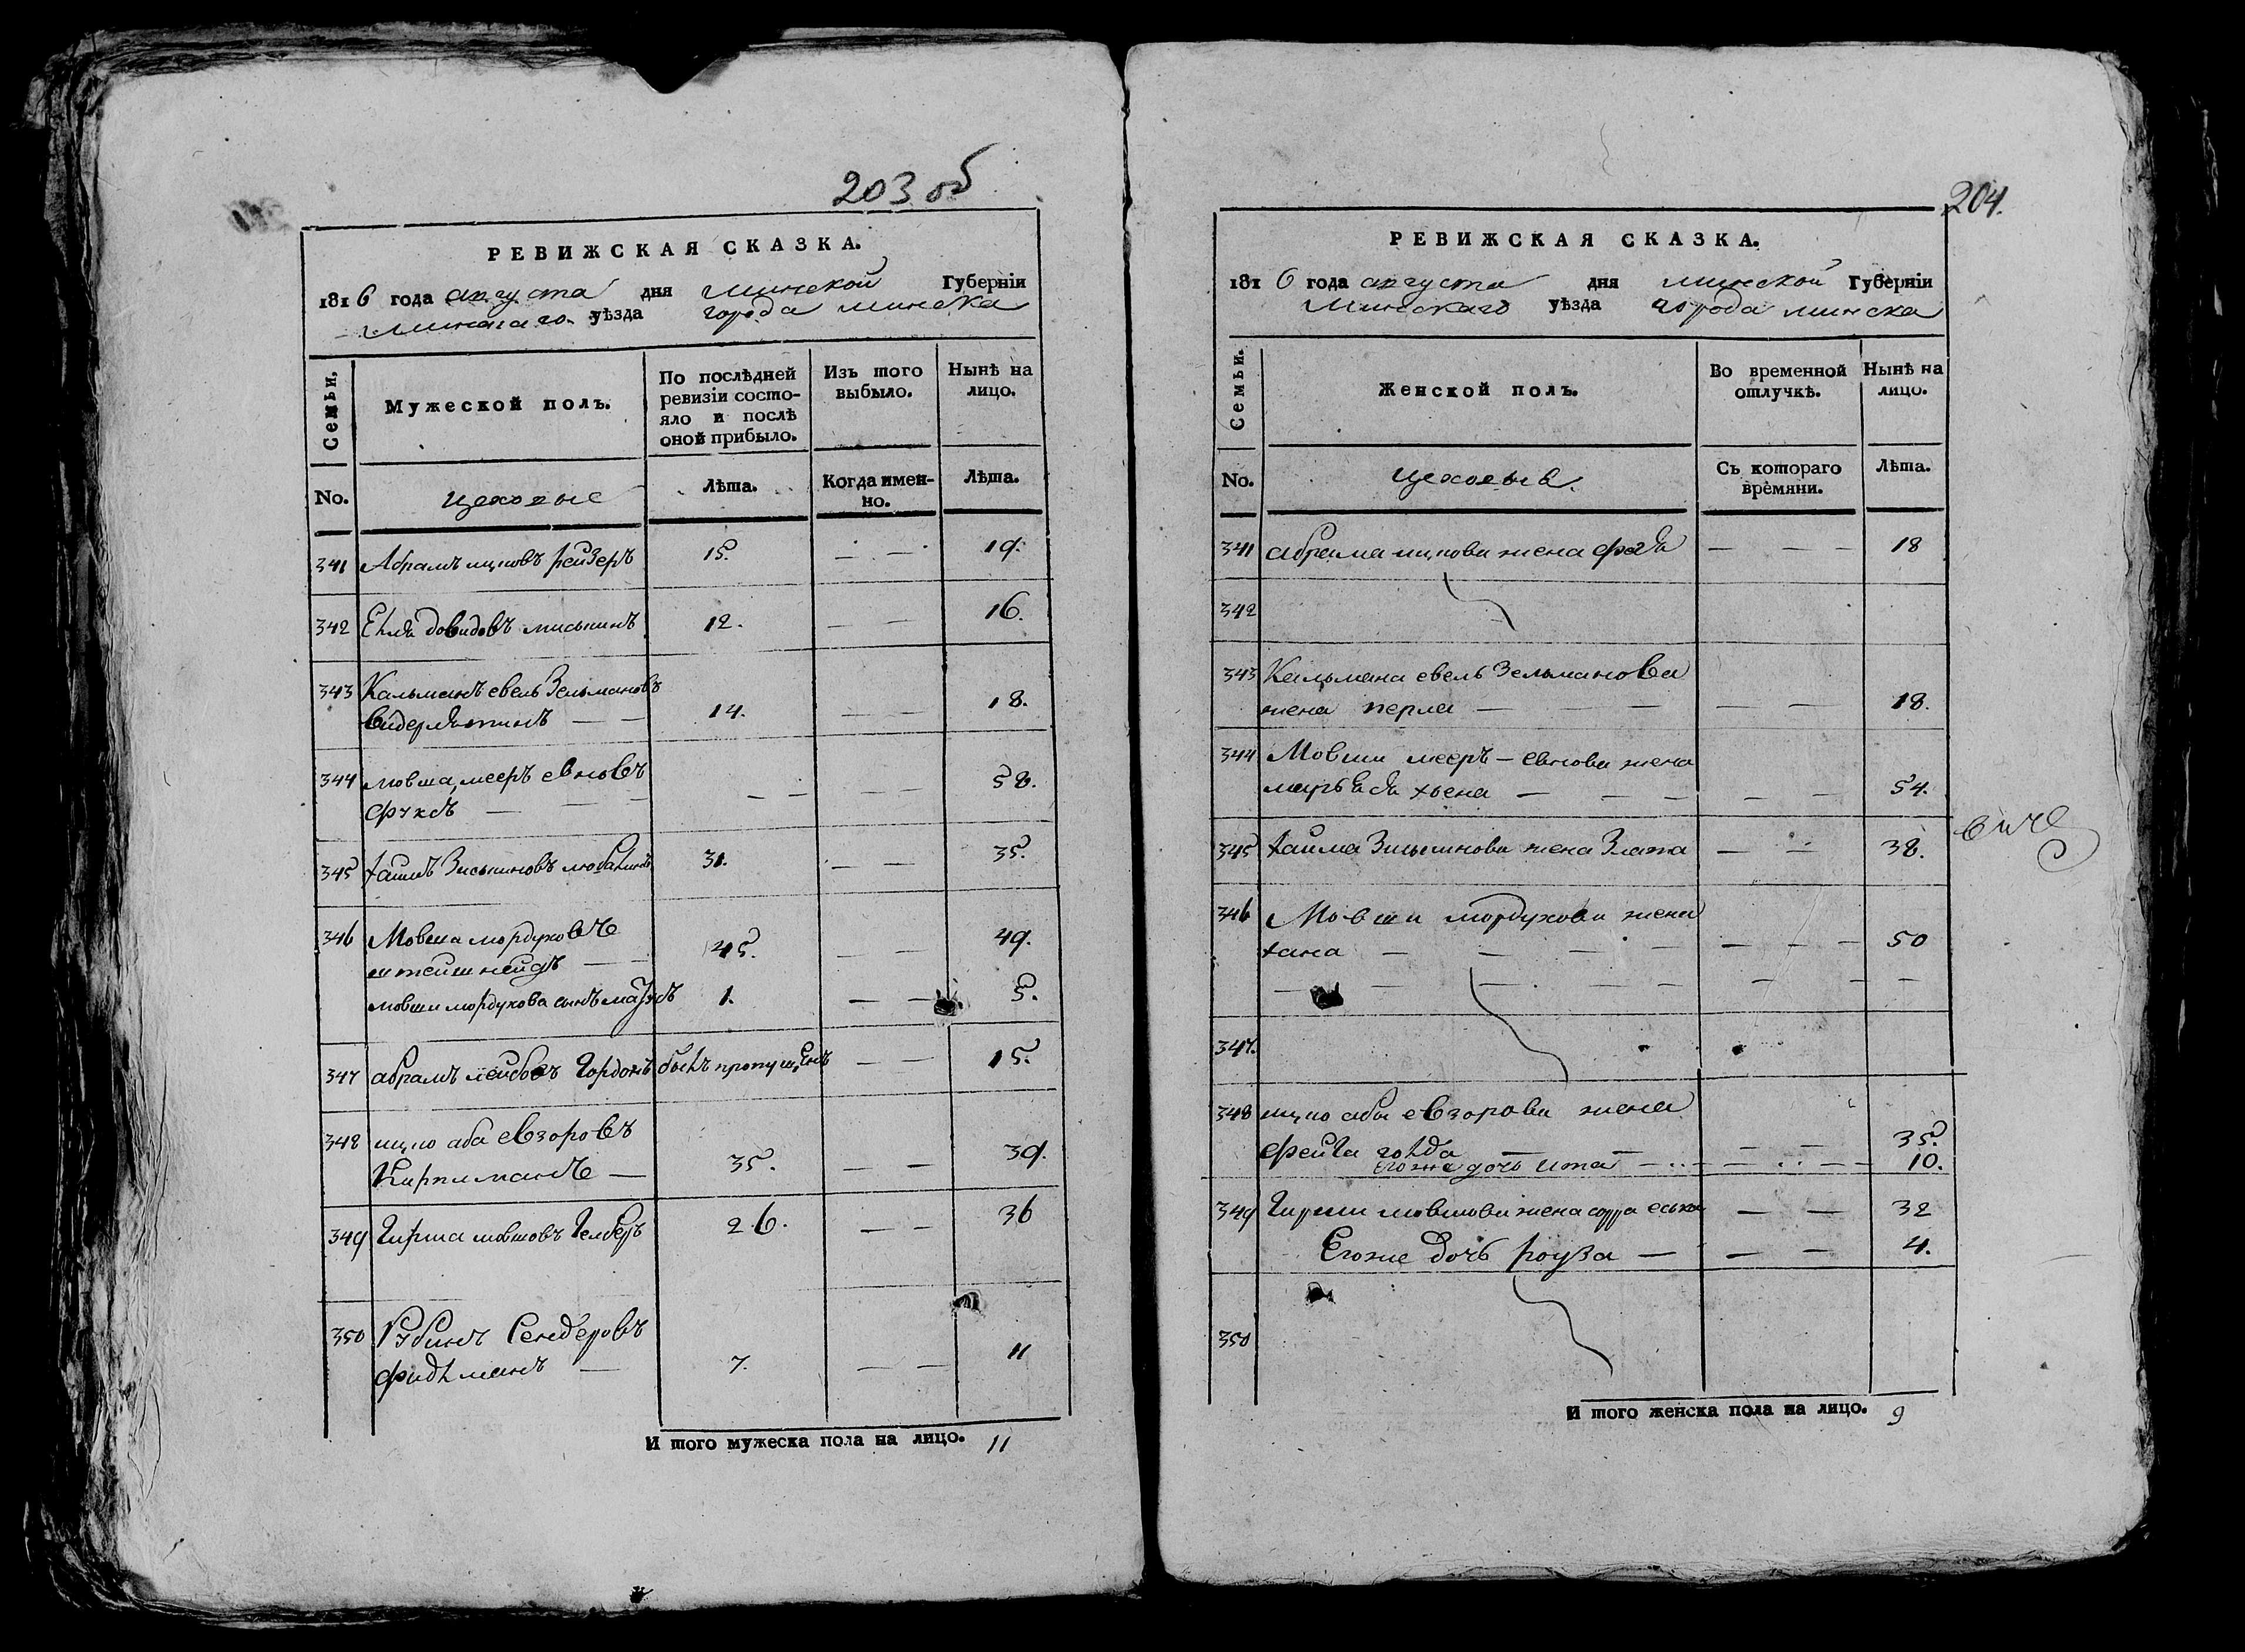 203 об
РЕВИЖСКАЯ СКАЗКА.
1816 года августа дня минской Губерніи
минскаго уѣзда города минска
Семьи,
Мужеской полъ.
По послѣдней ревизіи состо-
яло и послѣ
оной прибыло.
Изъ того
выбыло.
Нынѣ на
лицо.
No.
цеховые
Лѣта.
Когда имен-
но.
Лѣта.
341 Абрамъ ицковъ рейзеръ 15. — — 19.
342 Еля довидовъ миськинъ 12. — — 16.
343 Кальманъ евель Зельмановъ
— — 14. — — 18.
344 мовша, мееръ евновъ
фуксъ — — — — — — — 58.
345 хаимъ Зиськиновъ 31. — — 35.
346 Мовша мордуховъ
— — 45. — — 49.
мовши мордухова сынъ 1. — — 5.
347 абрамъ лейбовъ Гордонъ былъ пропущенъ — — 15.
348 ицко аба евзоровъ
— 35. — — 39.
349 Гирша мовшовъ 26. — — 36
350 Рубинъ Сендеровъ
фидлманъ — 7. — — 11
И того мужеска пола на лицо. 11
204.
РЕВИЖСКАЯ СКАЗКА.
1816 года августа дня минской Губерніи
Минскаго уѣзда города минска
Семьи.
Женской полъ.
Во временной
отлучкѣ.
Нынѣ на
лицо.
No.
цеховыя.
Съ котораго
времяни.
Лѣта.
341 абрама ицкова жена — — — 18
342
343 Кальмана евель Зельманова
жена перла — — — — — 18.
344 Мовши мееръ — евнова жена
хьена — — — — — 54.
345 хаима Зиськинова жена Злата — — 38.
346 Мовши мордухова жена
хана — — — — — — — 50
— — — — — — — —
347.
348 ицко аба евзорова жена
фейга голда — — — — 35.
его же дочь ита — — — — 10.
349 Гирши мовшова жена — — 32
Егоже дочь роуза — — — 4.
350
И того женска пола на лицо. 9